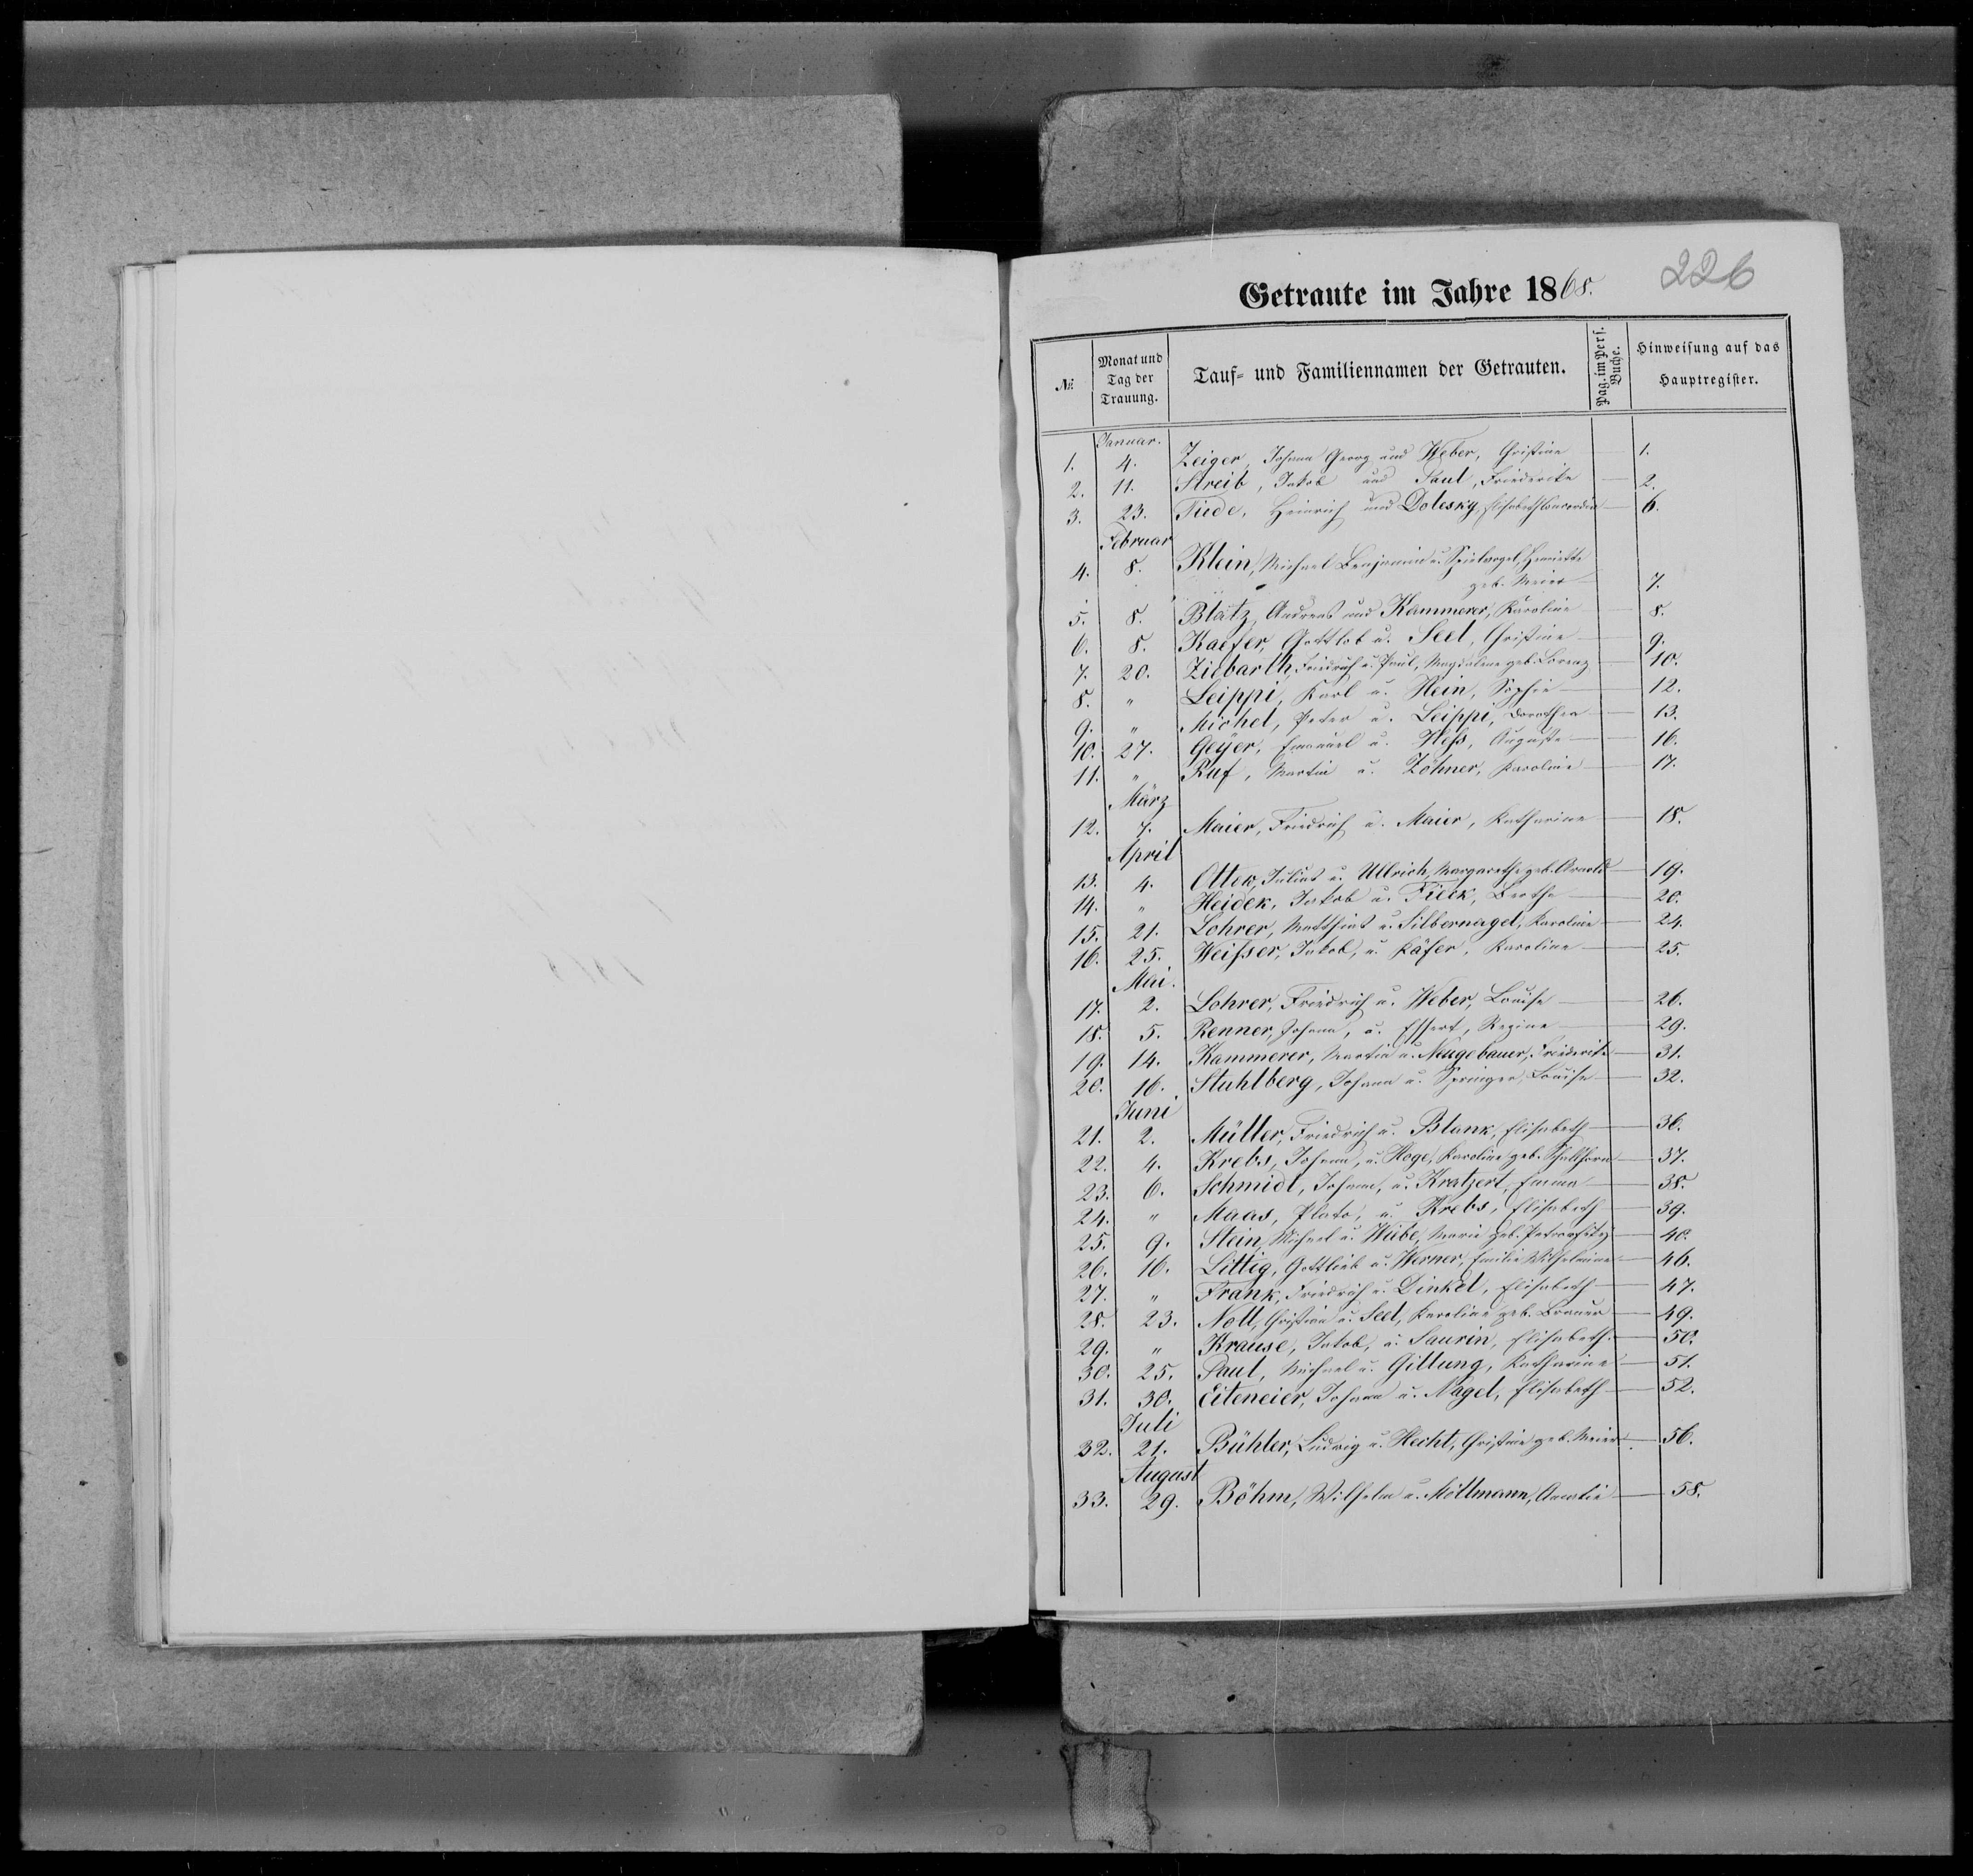 226
Getraute im Jahre 1868.
№ Monat und Tag der Trauung. Tauf- und Familiennamen der Getrauten. Pag. im Pers. Buche. Hinweisung auf das Hauptregister.
Januar.
1. 4. Zeiger, Johann Georg und Weber, Christine — 1.
2. 11. Streib, Jakob und Paul, Friederike — 2.
3. 23. Tiede, Heinrich und Dolesky, Elisabeth Concordia — 6.
Februar
4. 8. Klein, Michael Benjamin u. Spielvogel, Henriette
geb. Meier — 7.
5. 8. Blatz, Andreas und Kammerer, Karoline — 8.
6. 8. Kaefer, Gottlob u. Seel, Christine — 9.
7. 20. Ziebarth, Friedrich u. Paul, Magdalena geb. Lorenz — 10.
8. " Leippi, Karl u. Hein, Sophie — 12.
9. " Michel, Peter u. Leippi, Dorothea — 13.
10. 27. Geÿer, Emanuel u. Heß, Auguste — 16.
11. " Ruf, Martin u. Zöhner, Karoline — 17.
März
12. 7. Maier, Friedrich u. Maier, Katharina — 18.
April
13. 4. Otter, Julius u. Ullrich, Margarethe geb. Arnold — 19.
14. " Heidek, Jakob u. Fieck, Bertha — 20.
15. 21. Lohrer, Matthias u. Silbernagel, Karoline — 24.
16. 25. Weißer, Jakob, u. Käfer, Karoline — 25.
Mai.
17. 2. Lohrer, Friedrich u. Weber, Louise — 26.
18. 5. Renner, Johann, u. Essert, Regine — 29.
19. 14. Kammerer, Martin u. Neugebauer, Friederike — 31.
20. 16. Stuhlberg, Johann u. Springer, Louise — 32.
Juni
21. 2. Müller, Friedrich u. Blank, Elisabeth — 36.
22. 4. Krebs, Johann, u. Hoge, Karoline geb. Schellhorn — 37.
23. 6. Schmidt, Johann, u. Kratzert, Emma — 38.
24. " Maas, Plato, u. Krebs, Elisabeth — 39.
25. 9. Stein, Michael u. Wiebe, Maria geb. — 40.
26. 16. Littig, Gottlieb u. Werner, Emilie Wilhelmine — 46.
27. " Frank, Friedrich u. Dinkel, Elisabeth — 47.
28. 23. Noll, Christian u. Seel, Karoline geb. Brauer — 49.
29. " Krause, Jakob, u. Saurin, Elisabeth. — 50.
30. 25. Paul, Michael u. Gillung, Katharina — 51.
31. 30. Eiteneier, Johann u. Nagel, Elisabeth — 52.
Juli
32. 21. Bühler, Ludwig u. Hecht, Christine geb. Meier — 56.
August
33. 29. Böhm, Wilhelm u. Möllmann, Amalie — 58.